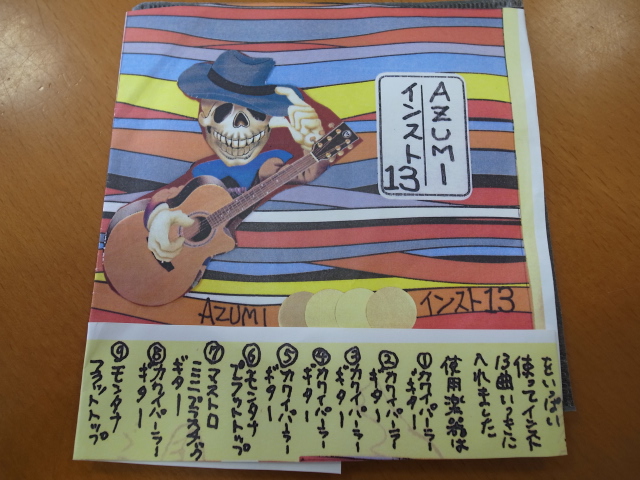 AZUMI
インスト
13
AZUMI
インスト13
をいっぱい
使ってインスト
13曲いっきに
入れました
使用楽器は
①カワイパーラー
ギター
②カワイパーラー
ギター
③カワイパーラー
ギター
④カワイパーラー
ギター
⑤カワイパーラー
ギター
⑥モンタナ
フラットトップ
⑦マストロ
ミニプラスチック
ギター
⑧カワイパーラー
ギター
⑨モンタナ
フラットトップ